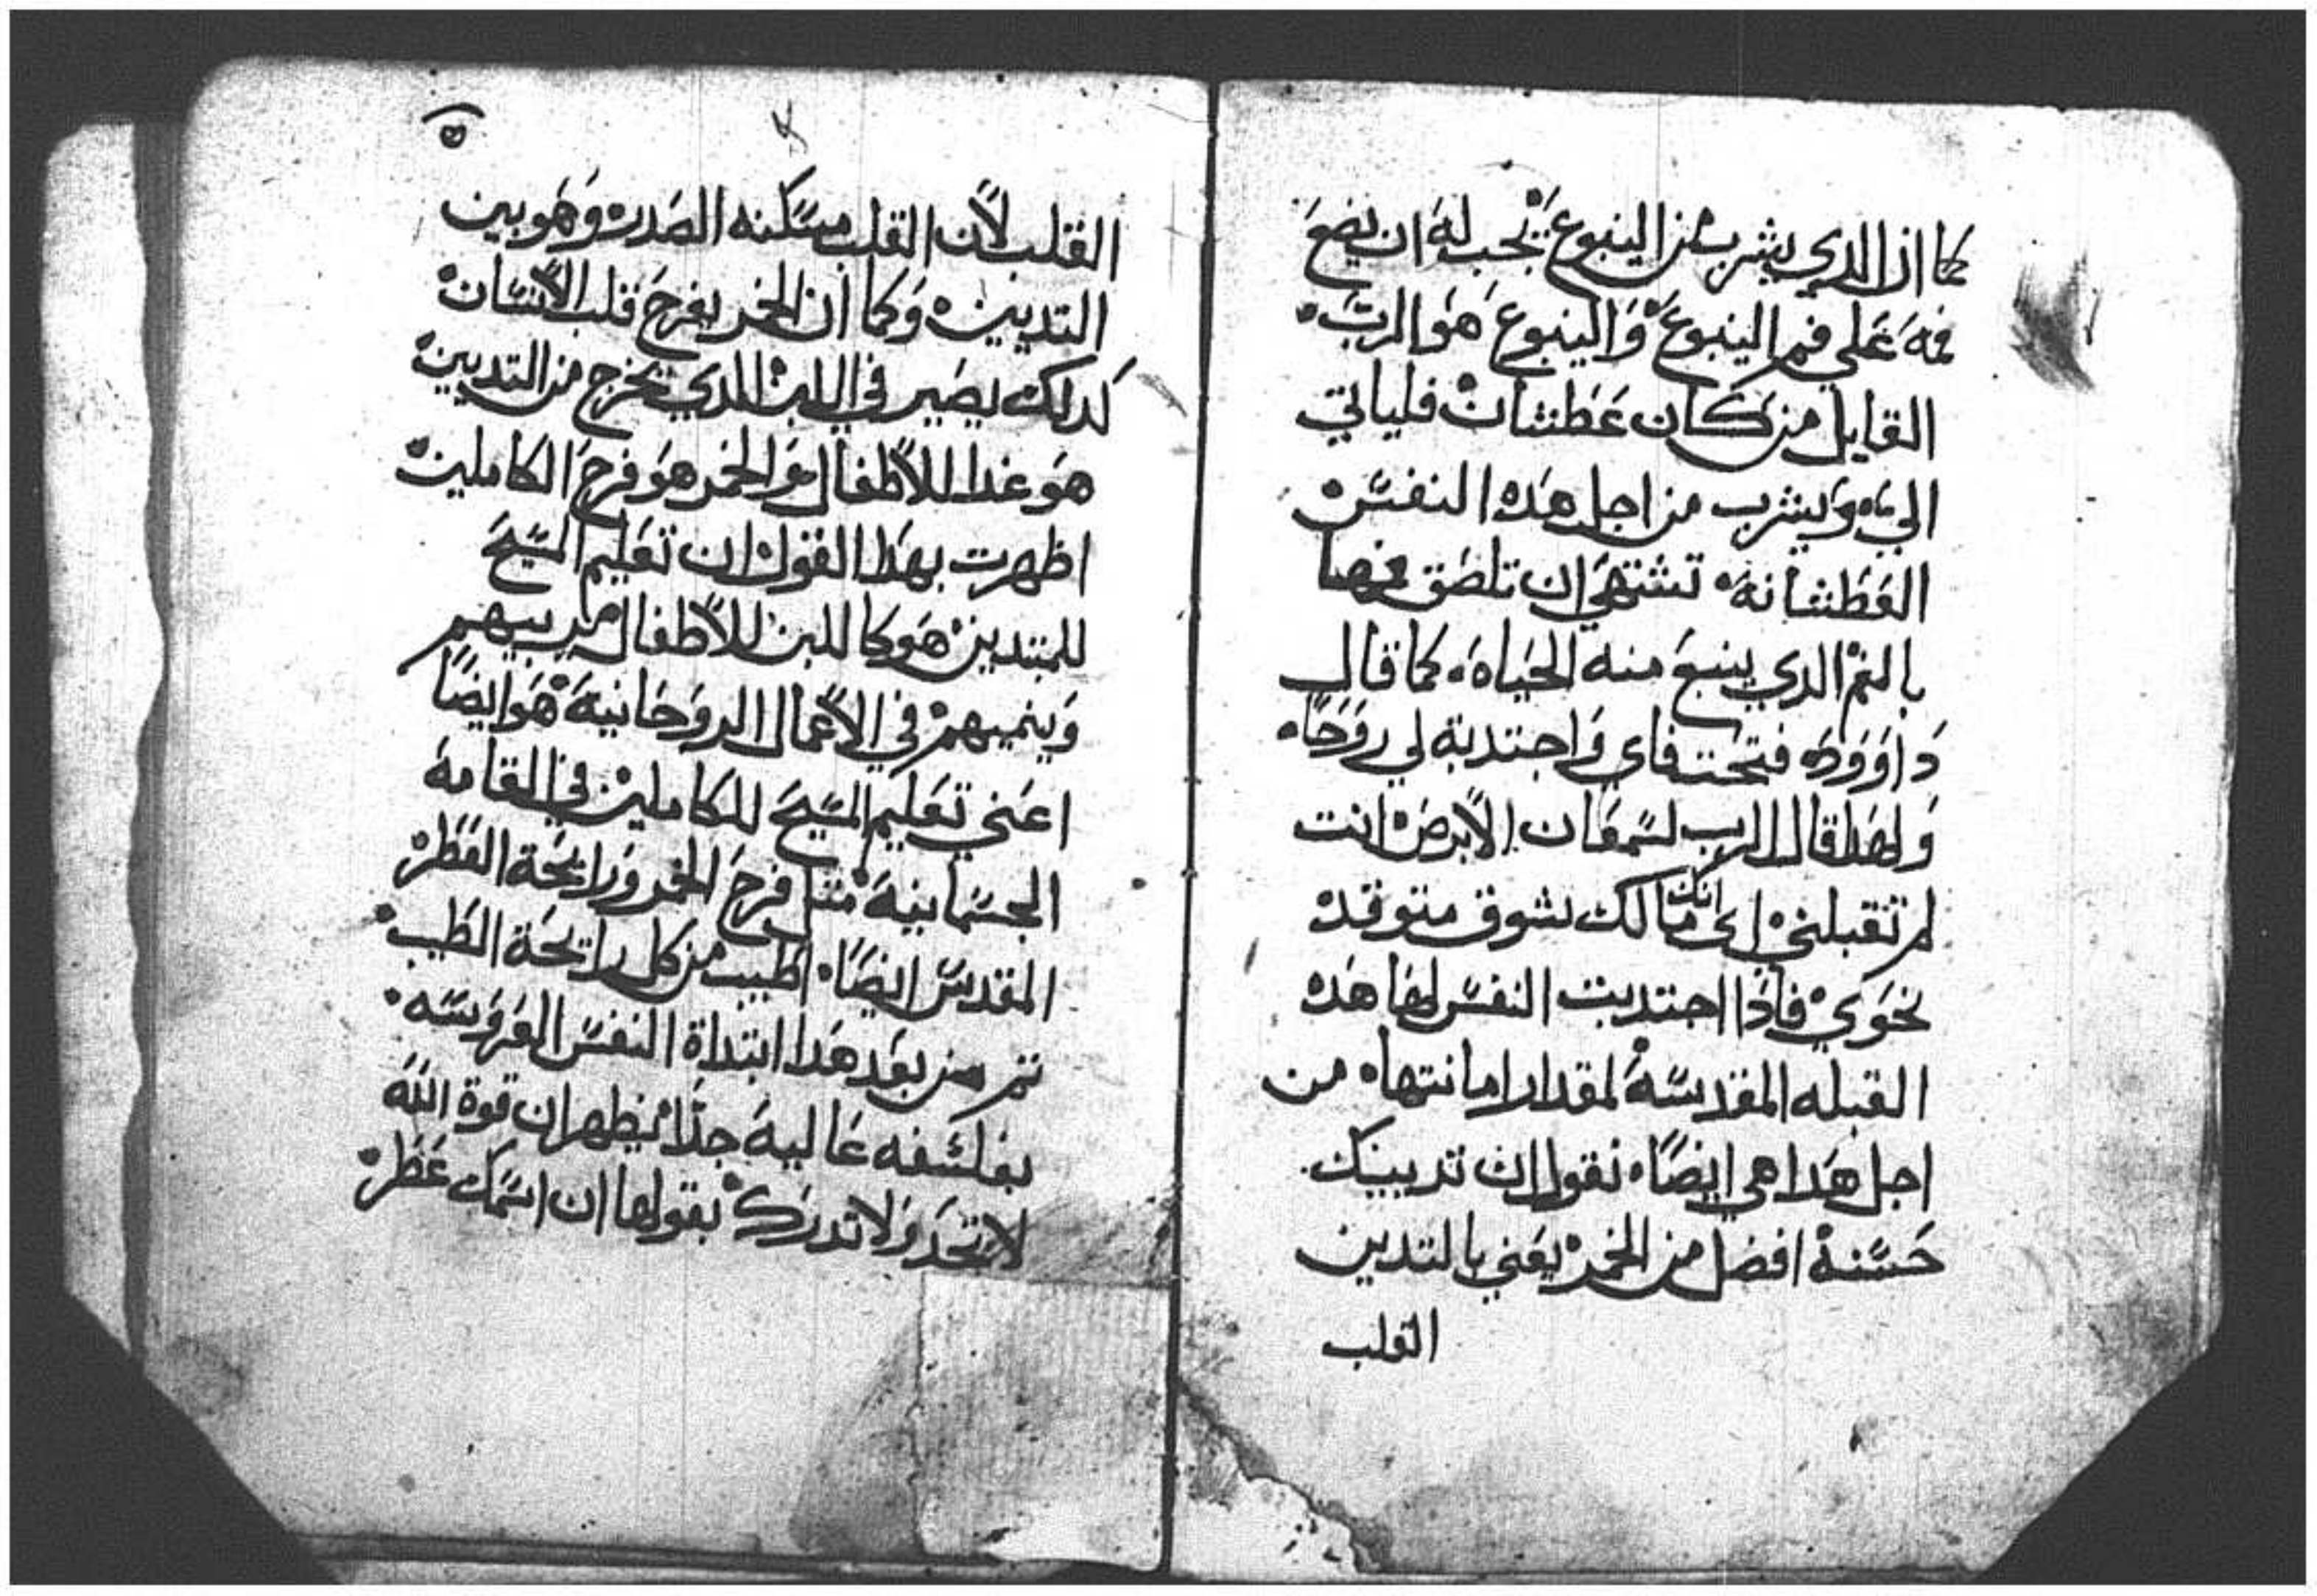 كما ان الدي يشرب من الينبوع يجب له ان يضع
فمه علي فم الينبوع والينبوع هو الرب
القايل من كان عطشان فلياتي
الي ويشرب من اجل هده النفس
العطشانه تشتهي ان تلصق فمها
بالفم الدي ينبع منه الحياه كما قال
داوود فتحت فاي واجتدبة لي روحاً
ولهدا قال الرب لسمعان الابرص انت
لم تقبلني اي انك ما لك شوق متوقد
نحوي فادا اجتدبت النفس لها هده
القبله المقدسة لمقدار امانتها من
اجل هدا هي ايضاً تقول ان تدييك
حسنة افضل من الخمر يعني بالتدين
القلب
٥
القلب لأن القلب مسكنه الصدر وهو بين
التديين وكما ان الخمر يفرح قلب الأنسان
كدلك يصير في اللبن الدي يخرج من التديين
هو غدا للأطفال والخمر هو فرح الكاملين
اظهرت بهدا القول ان تعليم المسيح
للمبتدين هو كاللبن للأطفال يربيهم
وينميهم في الأعمال الروحانية هو ايضاً
اعني تعليم المسيح للكاملين في القامة
الجسمانية مثل فرح الخمر ورايحة العطر
المقدس ايضاً اطيب من كل رايحة الطيب
تم من بعد هدا ابتداة النفس العروسه
بفلسفه عالية جداً ليظهر ان قوة الله
لا تحد ولا تدرك بقولها ان اسمك عطر